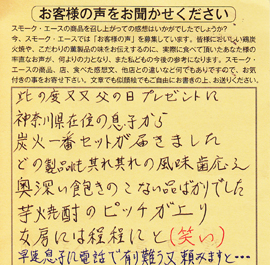 お客様の声をお聞かせください
スモーク・エースの商品を召し上がっての感想はいかがでしたでしょうか?
今、スモーク・エースでは「お客様の声」を募集しています。皆様においしい鶏炭
火焼や、こだわりの薫製品の味をお伝えするのに、実際に食べて頂いたあなた様の
率直なお声が、何よりの力となり、また私どもの今後の参考になります。スモーク・
エースの商品、店、食べた感想文、他店との違いなど何でもありですので、お気
付きの事をお寄せ下さい。文章でも似顔絵でもご自由にお書きの上、お送りください。
此の度又父の日プレゼントに
神奈川県在住の息子から
炭火一番セットが届きました
どの製品も其れ其れの風味歯応え
奥深い飽きのこない品ばかりでした
芋焼酎のピッチが上り
女房には程程にと(笑い)
早速息子に電話で有り難う又頼みますと…